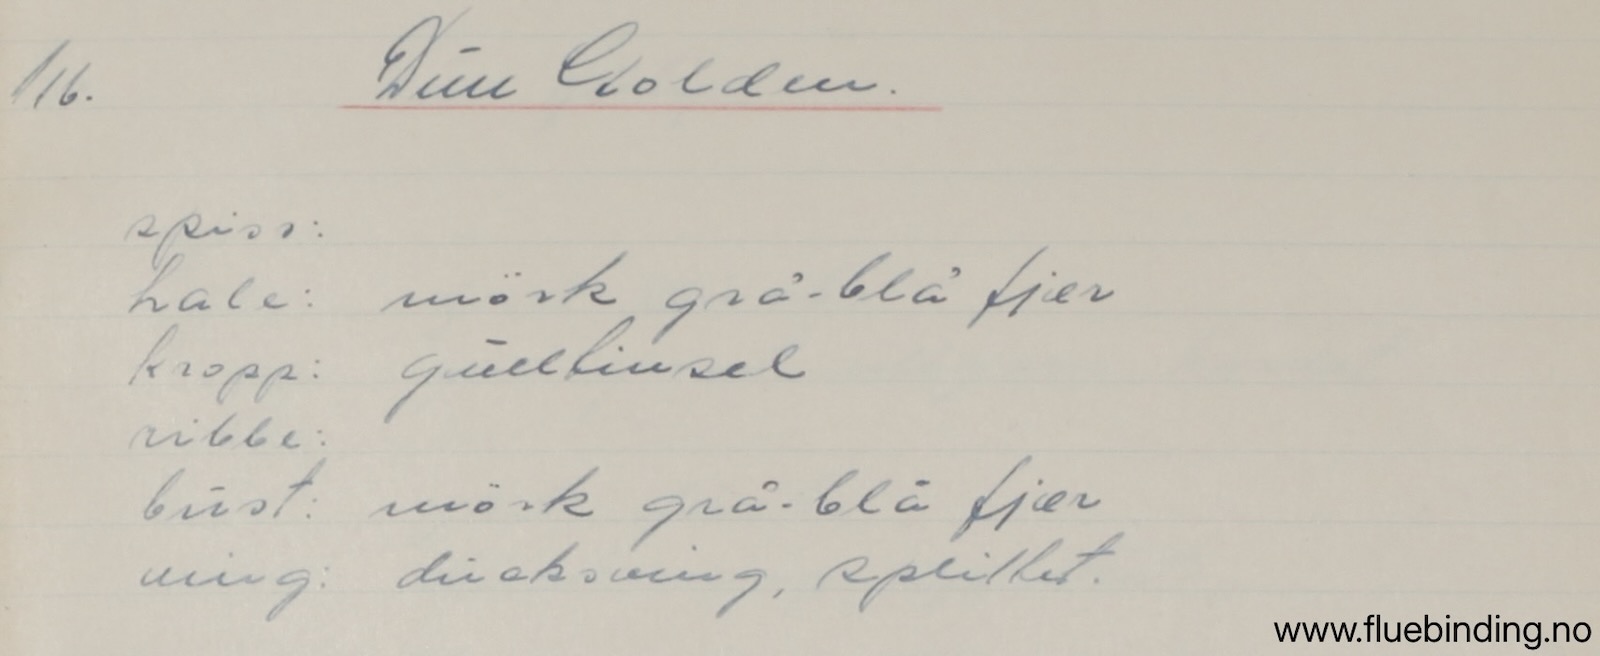 116. Dun Golden.
spiss:
hale: mörk grå-blå fjær
kropp: gulltinsel
ribbe:
bust: mörk grå-blå fjær
ving: duckswing, splittet.
www.fluebinding.no